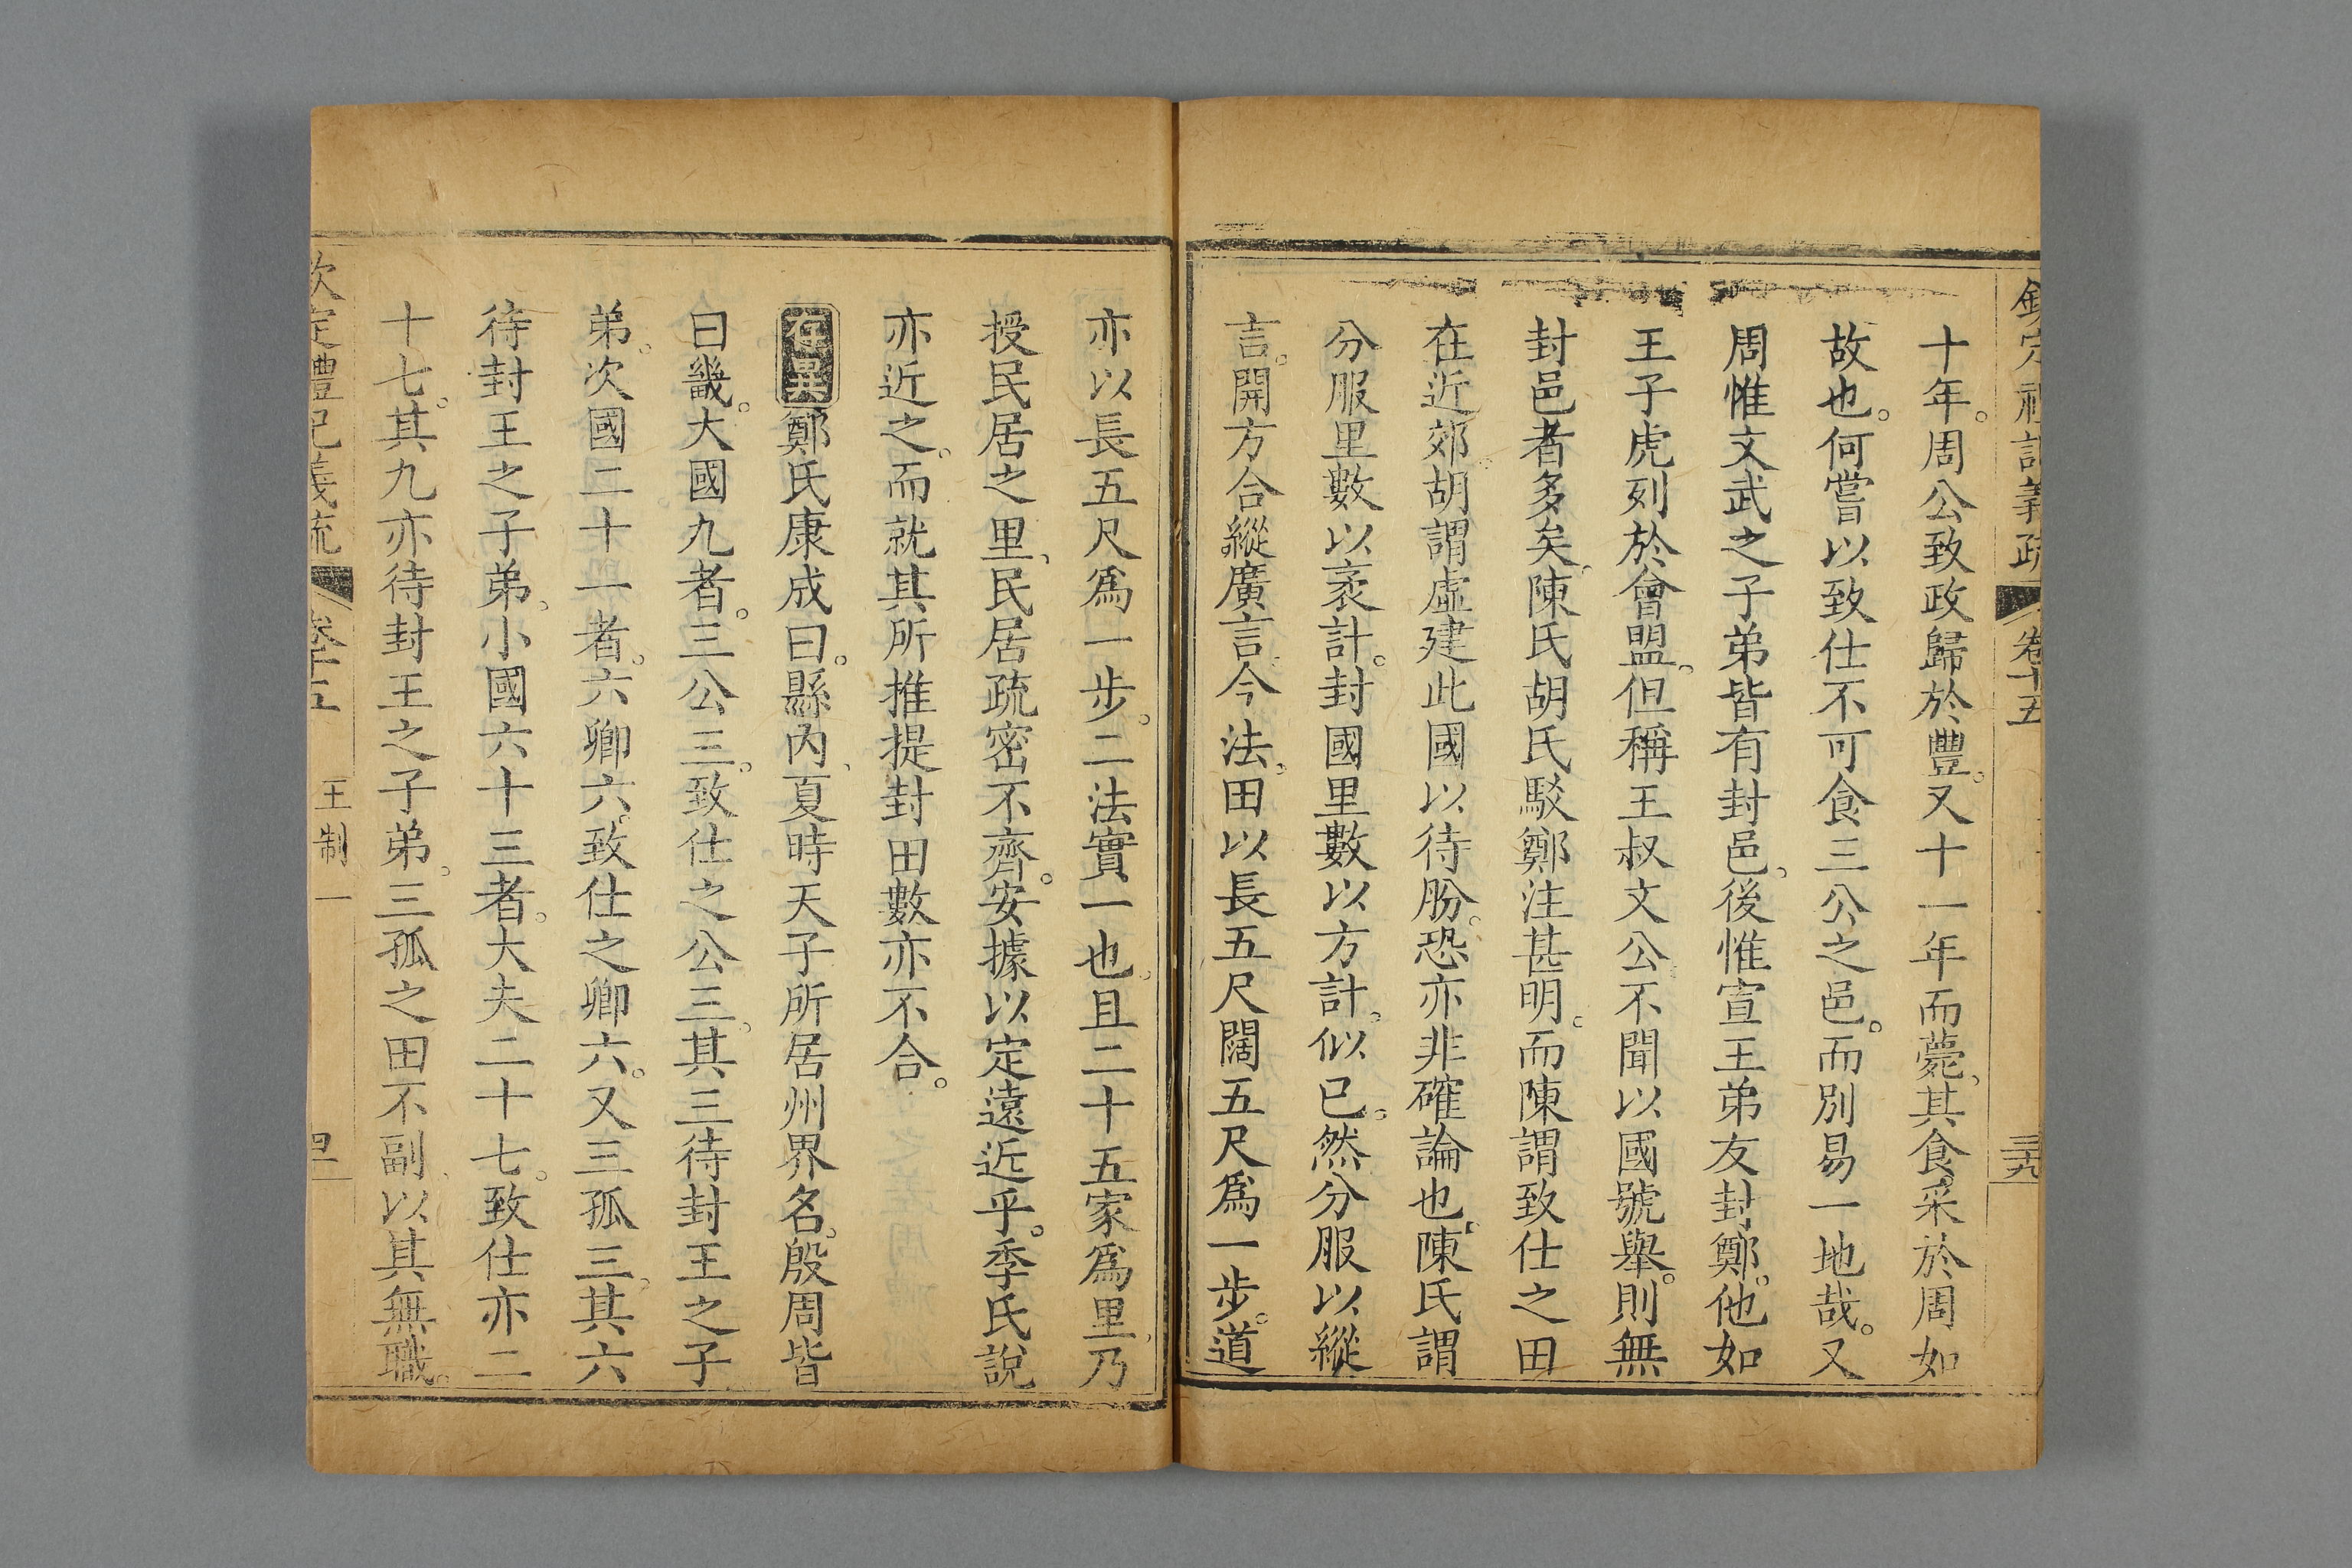 欽定禮記義疏 卷十五 三九
十年。周公致政歸於豐。又十一年而薨、其食采於周如
故也。何嘗以致仕不可食三公之邑。而別易一地哉。又
周惟文武之子弟皆有封邑、後惟宣王弟友封鄭。他如
王子虎列於會盟。但稱王叔文公、不聞以國號舉。則無
封邑者多矣、陳氏胡氏駁鄭注甚明。而陳謂致仕之田
在近郊。胡謂虛建此國以待肦。恐亦非確論也、陳氏謂
分服里數以袤計。封國里數以方計。似已。然分服以縱
言。開方合縱廣言、今法、田以長五尺闊五尺為一步。道
亦以長五尺為一步。二法實一也。且二十五家為里、乃
授民居之里、民居疏密不齊。安據以定遠近乎。季氏說
亦近之。而就其所推提封田數亦不合。
存異鄭氏康成曰。縣內、夏時天子所居州界名。殷周皆
曰畿。大國九者。三公三。致仕之公三。其三待封王之子
弟。次國二十一者。六卿六。致仕之卿六。又三孤三。其六
待封王之子弟、小國六十三者。大夫二十七。致仕亦二
十七。其九亦待封王之子弟。三孤之田不副、以其無職。
欽定禮記義疏 卷十五 王制一